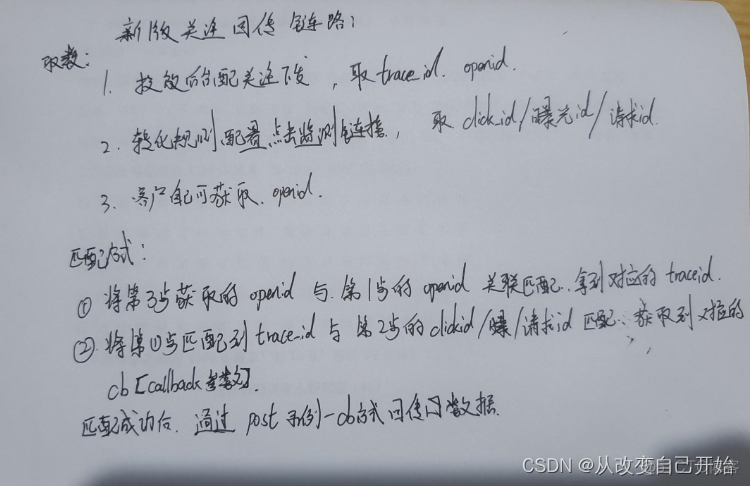 新版关注回传链路:
取数:
1. 投放后台配关注下发, 取trace_id. openid.
2. 转化规则配置点击监测链接, 取click_id/曝光id/请求id.
3. 客户自己可获取. openid.
匹配方式:
① 将第3步获取的openid 与. 第1步的openid 关联匹配. 拿到对应的traceid.
② 将第①步匹配到trace_id 与 第2步的clickid/曝/请求id 匹配、获取到对应的
cb [callback参数].
匹配成功后. 通过 post 示例-cb方式回传数据.
CSDN @从改变自己开始